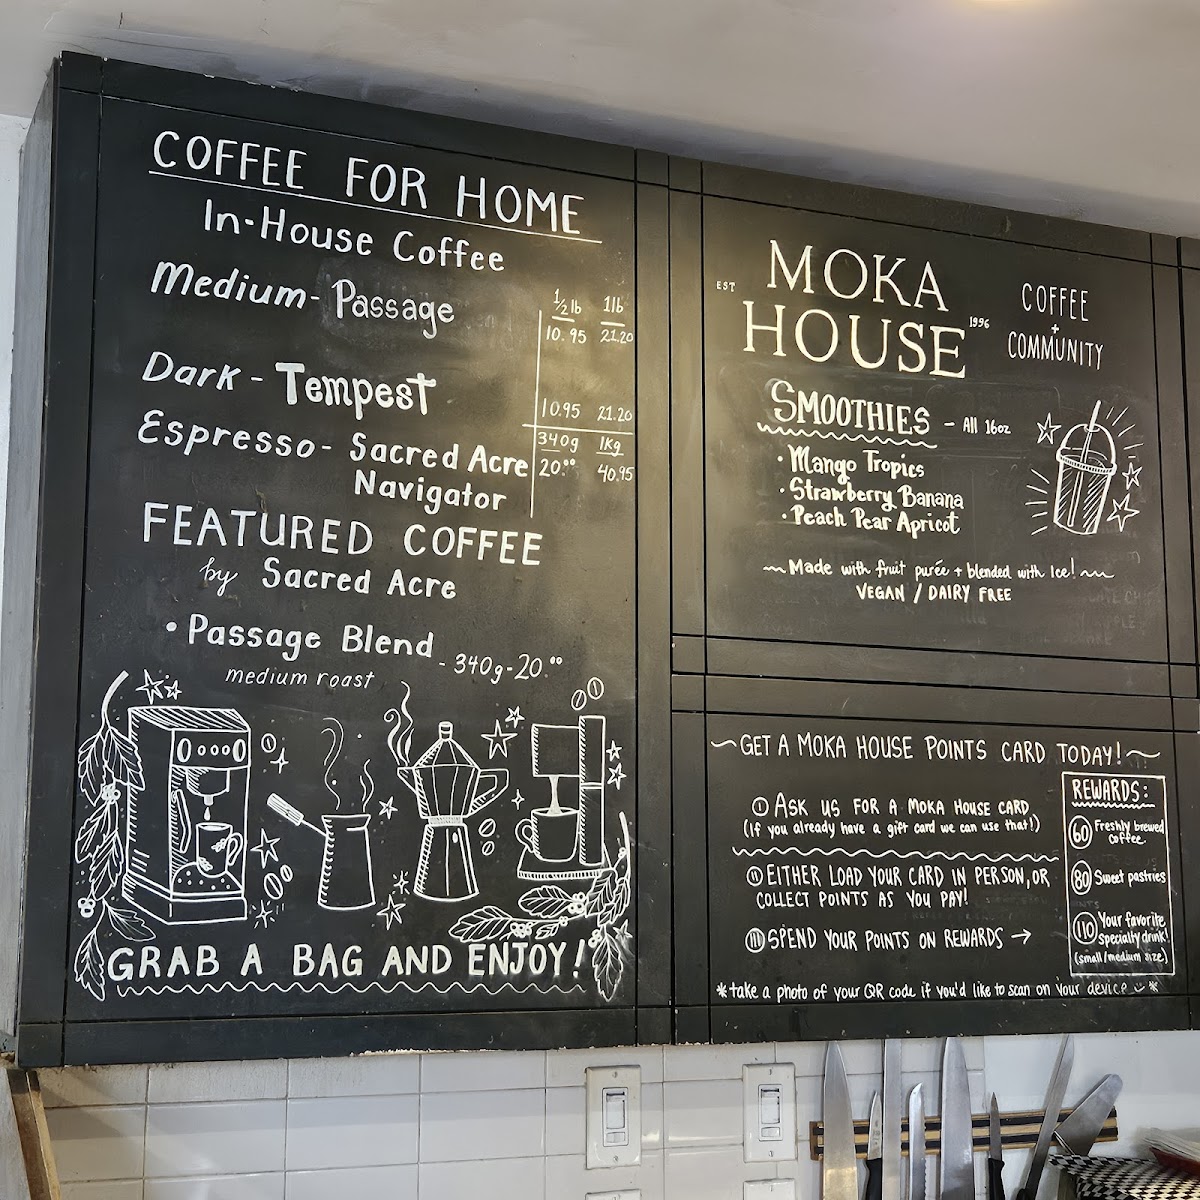 COFFEE FOR HOME
In-House Coffee
Medium - Passage
1/2 lb 1lb
10.95 21.20
Dark - Tempest
10.95 21.20
Espresso - Sacred Acre
Navigator
340g 1kg
20.00 40.95
FEATURED COFFEE
by Sacred Acre
• Passage Blend - 340g - 20.00
medium roast
GRAB A BAG AND ENJOY!
EST MOKA
HOUSE 1996
COFFEE
+
COMMUNITY
SMOOTHIES - All 16oz
• Mango Tropics
• Strawberry Banana
• Peach Pear Apricot
~Made with fruit purée + blended with Ice!~
VEGAN / DAIRY FREE
~GET A MOKA HOUSE POINTS CARD TODAY!~
I ASK US FOR A MOKA HOUSE CARD
(If you already have a gift card we can use that!)
II EITHER LOAD YOUR CARD IN PERSON, OR
COLLECT POINTS AS YOU PAY!
III SPEND YOUR POINTS ON REWARDS →
REWARDS:
60 Freshly brewed
coffee.
80 Sweet pastries
110 Your favorite
specialty drink!
(small/medium size)
*take a photo of your QR code if you'd like to scan on your device *